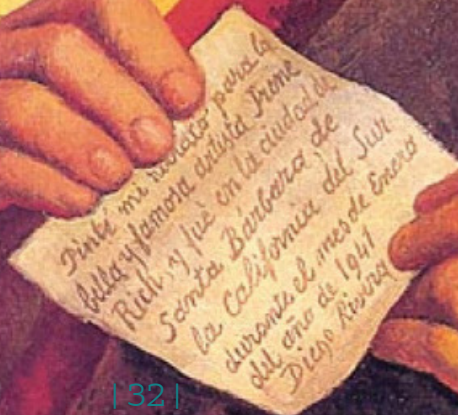 Pinté mi retrato para la
bella y famosa artista Irene
Rich y fué en la ciudad de
Santa Bárbara de
la California del Sur
durante el mes de Enero
del año de 1941
Diego Rivera
|32|